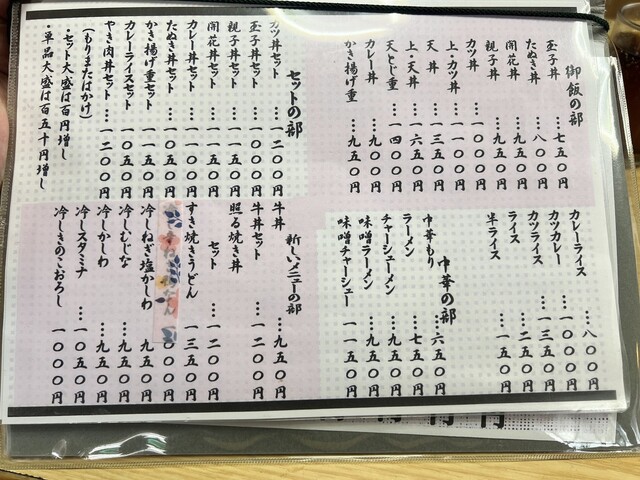 御飯の部
玉子丼 …七五〇円
たぬき丼 …八〇〇円
開花丼 …九五〇円
親子丼 …九五〇円
カツ丼 …一〇〇〇円
上・カツ丼 …一一〇〇円
天丼 …一三五〇円
上・天丼 …一六五〇円
天とじ重 …一四〇〇円
カレー丼 …九〇〇円
かき揚げ重 …九五〇円
セットの部
カツ丼セット …一二〇〇円
玉子丼セット …一〇〇〇円
親子丼セット …一一五〇円
開花丼セット …一一五〇円
カレー丼セット …一一〇〇円
たぬき丼セット …一〇五〇円
かき揚げ重セット …一一五〇円
カレーライスセット …一〇五〇円
やき肉丼セット …一二〇〇円
(もりまたはかけ)
・セット大盛は百円増し
・単品大盛は百五十円増し
カレーライス …八〇〇円
カツカレー …一〇〇〇円
カツライス …一三五〇円
ライス …二五〇円
半ライス …一五〇円
中華の部
中華もり …六五〇円
ラーメン …七五〇円
チャーシューメン …九五〇円
味噌ラーメン …九五〇円
味噌チャーシュー 一一五〇円
新しいメニューの部
牛丼 …九五〇円
牛丼セット …一二〇〇円
照る焼き丼 …九五〇円
セット …一二〇〇円
すき焼きうどん 一三五〇円
冷しねぎ塩かしわ 九五〇円
冷しむじな …九五〇円
冷しかしわ …九五〇円
冷しスタミナ …一〇五〇円
冷しきのこおろし 一〇〇〇円